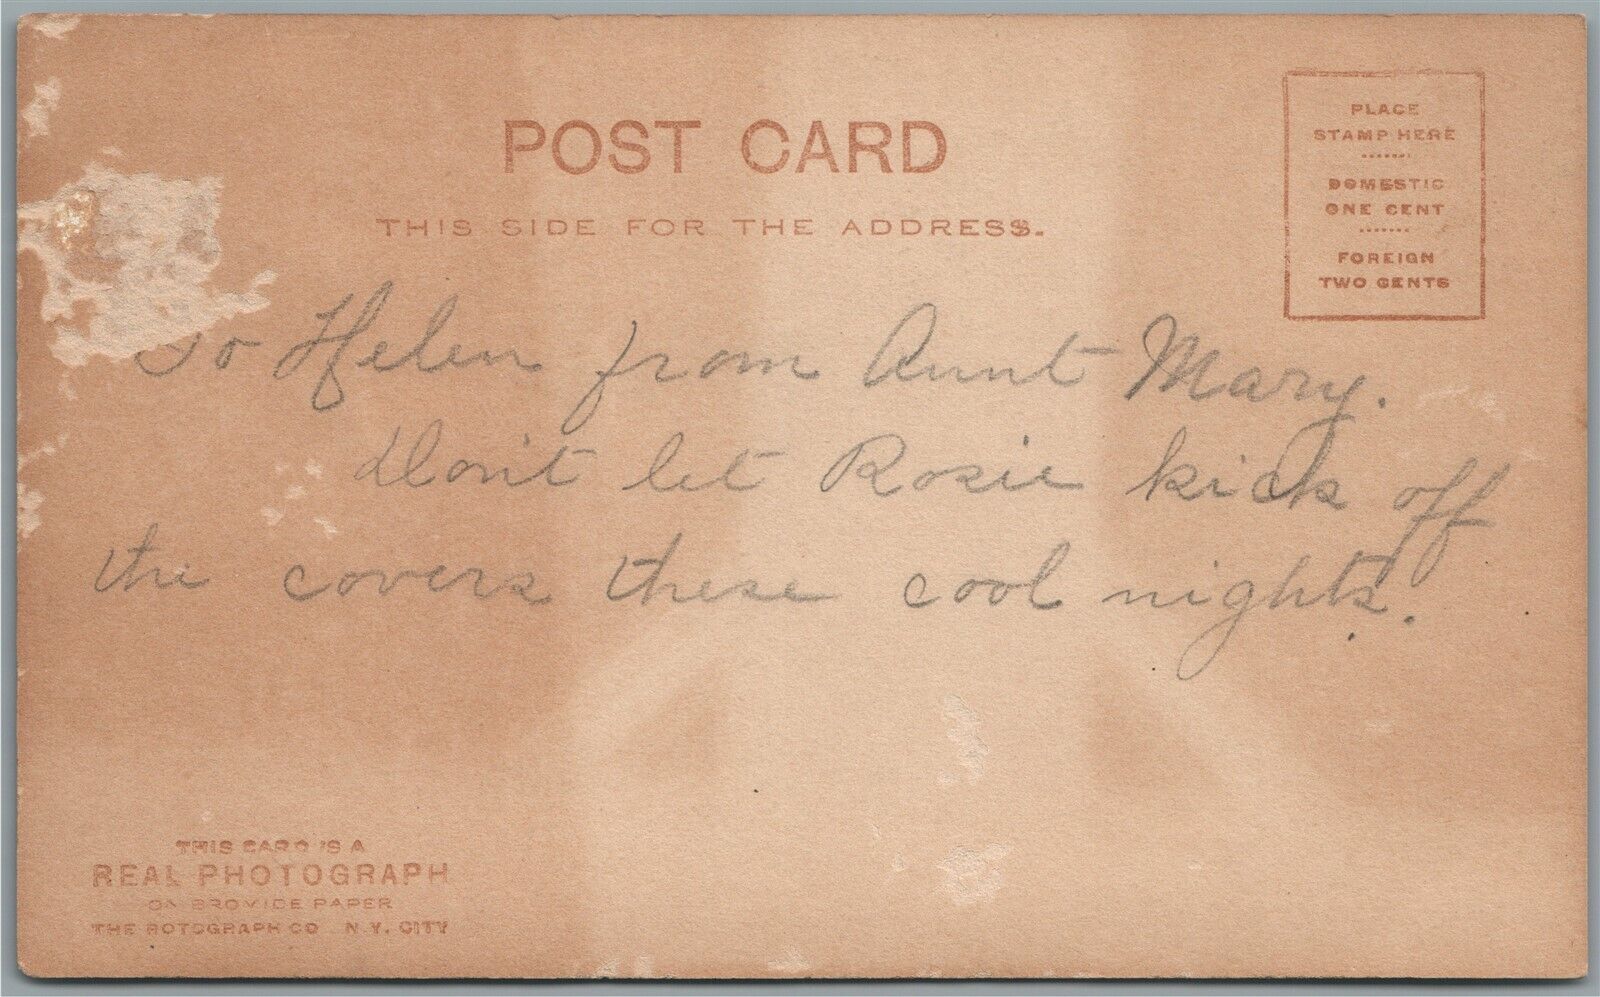 POST CARD
THIS SIDE FOR THE ADDRESS.
PLACE
STAMP HERE
DOMESTIC
ONE CENT
FOREIGN
TWO CENTS
To Helen from Aunt Mary.
Don't let Rosie kick off
the covers these cool nights.
THIS CARD IS A
REAL PHOTOGRAPH
ON BROMIDE PAPER
THE ROTOGRAPH CO N.Y. CITY